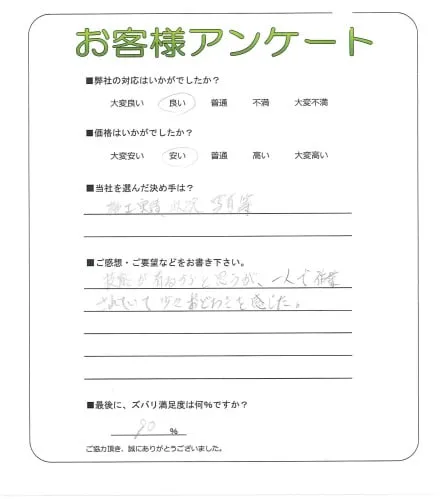 お客様アンケート
■弊社の対応はいかがでしたか？
大変良い 良い 普通 不満 大変不満
■価格はいかがでしたか？
大変安い 安い 普通 高い 大変高い
■当社を選んだ決め手は？
施工実績 状況 写真等
■ご感想・ご要望などをお書き下さい。
と思うが、一人で作業
されていて を感じた。
■最後に、ズバリ満足度は何%ですか？
90 %
ご協力頂き、誠にありがとうございました。